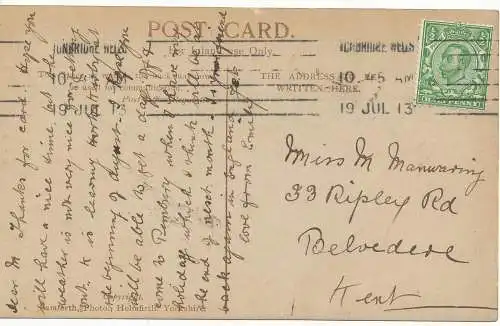 POST CARD.
For Inland Use Only.
THE ADDRESS
WRITTEN HERE.
TUNBRIDGE WELLS
TUNBRIDGE WELLS
10
19 JUL 13
19 JUL 13
Dear M Thanks for card. Hope you
will have a nice time, but the
weather is not very nice
out. K is leaving
the beginning of August. I
will be able to get a day off &
come to Pembury when I have my
holiday which I think will be at
the end of next month.
back again in England
love from Emily
Miss M Manwaring
33 Ripley Rd
Belvedere
Kent
Copyright,
Bamforth, Photo, Holmfirth, Yorkshire